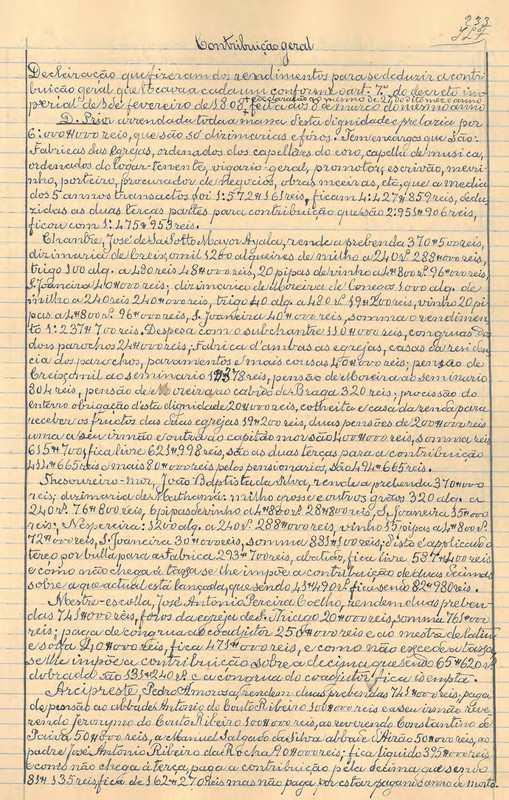 233
Contribuição geral
Declaração que fizeram dos rendimentos para se deduzir a contri-
buição geral que tocava a cada um conforme o art. 7º do decreto im-
perial de 1 de fevereiro de 1808, feita aos 8 de março do mesmo anno
+ e declaração no mesmo de 27 do dito mez e anno
D. Prior arrendada toda a massa d'esta dignidade e prelazia por
6:000#000 reis, que são só dizimarias e fóros. Tem encargos que são:
Fabricas das egrejas, ordenados dos capellães do coro, capella de musica,
ordenados do logar-tenente, vigario geral, promotor, escrivão, meiri-
nho, porteiro, procurador de negocios, obras meeiras, etc, que a media
dos 5 annos transactos foi 1:572#161 reis, ficam 4:427#859 reis, dedu-
zidas as duas terças partes para contribuição que são 2:951#906 reis,
ficou com 1:475#953 reis.
Chantre, José de Sá Sotto Mayor Ayala, rende a prebenda 370#500 reis,
dizimaria de Creixomil 1200 alqueires de milho a 240 rs. 288#000 reis,
trigo 100 alq. a 480 reis 48#000 reis, 20 pipas de vinho a 4#800 rs. 96#000 reis,
S. Joaneira 40#000 reis; dizimaria de Moreira de Conegos 1000 alq. de
milho a 240 reis 240#000 reis, trigo 40 alq. a 480 rs. 19#200 reis, vinho 20 pi-
pas a 4#800 rs. 96#000 reis, S. Joaneira 40#000 reis, somma o rendimen-
to 1:237#700 reis. Despesa com o subchantre 110#000 reis, congruas dos
dois parochos 24#000 reis; Fabrica d'ambas as egrejas, casas da residen-
cia dos parochos, paramentos e mais cousas 40#000 reis; pensão de
Creixomil ao seminario reis, pensão de Moreira ao seminario
804 reis, pensão de Moreira ao cabido de Braga 320 reis; procissão do
enterro obrigação d'esta dignidade 20#000 reis, colheita e casa da renda para
receber os fructos das duas egrejas 19#200 reis, duas pensões de 200#000 reis
uma a seu irmão e outra ao capitão mór são 400#000 reis, somma reis
615#700, fica livre 621#998 reis, são as duas terças para a contribuição
414#665 reis e mais 80#000 reis pelos pensionarios, são 494#665 reis.
Thesoureiro-mór, João Baptista da Silva, rende a prebenda 370#000
reis; dizimaria de Mathamá: milho grosso e outros grãos 320 alq. a
240 rs. 76#800 reis, 6 pipas de vinho a 4#800 rs. 28#800 reis, S. Joaneira 15#000
reis; Nespereira: 1200 alq. a 240 rs. 288#000 reis, vinho 15 pipas a 4#800 rs.
72#000 reis, S. Joaneira 30#000 reis, somma 881#100 reis; d'isto é applicado o
terço por bulla para a fabrica 293#700 reis, abatido, fica livre 587#400 reis
e como não chega á taxa se lhe impõe a contribuição de duas decimas
sobre a que actual está lançada, que sendo 41#490 rs. fica sendo 82#980 reis.
Mestre-escolla, José Antonio Pereira Coelho, rendem duas preben-
das 741#000 reis, foros da egreja de S. Thiago 20#000 reis, somma 761#000
reis; paga de congrua ao coadjutor 250#000 reis e ao mestre de latim
e solfa 40#000 reis, fica 471#000 reis, e como não excede a taxa
se lhe impõe a contribuicção sobre a decima que sendo 65#620 rs.
dobrada são 131#240 rs. e a congrua do coadjutor fica isempta.
Arcipreste, Pedro Amorosa, rendem duas prebendas 741#000 reis; paga
de pensão ao abbade Antonio do Couto Ribeiro 100#000 reis e a seu irmão Reve-
rendo Jeronymo do Couto Ribeiro 100#000 reis, ao reverendo Constantino de
Paiva 50#000 reis, a Manuel Salgado da Silva abbade d'Airão 50#000 reis, ao
padre José Antonio Ribeiro da Rocha 90#000 reis; fica liquido 395#000 reis
e como não chega á terça, paga a contribuição pela decima que sendo
81#135 reis, fica de 162#270 reis mas não paga por estar pagando anno de morto.